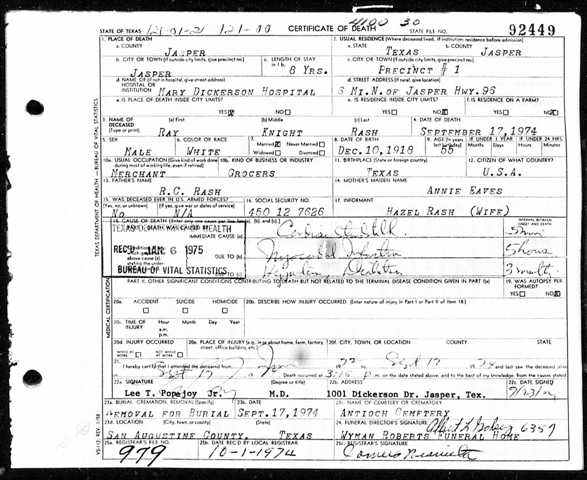 4100 30
STATE OF TEXAS 121-01-2 121-00 CERTIFICATE OF DEATH STATE FILE NO. 92449
1. PLACE OF DEATH 2. USUAL RESIDENCE (Where deceased lived. If institution: residence before admission)
a. COUNTY JASPER a. STATE TEXAS b. COUNTY JASPER
b. CITY OR TOWN (If outside city limits, give precinct no.) JASPER c. LENGTH OF STAY 8 YRS. c. CITY OR TOWN (If outside city limits, give precinct no.) PRECINCT # 1
d. NAME OF (If not in hospital, give street address) HOSPITAL OR INSTITUTION MARY DICKERSON HOSPITAL d. STREET ADDRESS (If rural, give location) 6 MI.N.OF JASPER HWY.96
e. IS PLACE OF DEATH INSIDE CITY LIMITS? YES NO e. IS RESIDENCE INSIDE CITY LIMITS? YES NO f. IS RESIDENCE ON A FARM? YES NO
3. NAME OF DECEASED (Type or print) (a) First RAY (b) Middle KNIGHT (c) Last RASH 4. DATE OF DEATH SEPTEMBER 17,1974
5. SEX MALE 6. COLOR OR RACE WHITE 7. Married Never Married Widowed Divorced 8. DATE OF BIRTH DEC.10,1918 9. AGE 55 IF UNDER 1 YEAR Months Days IF UNDER 24 HRS. Hours Minutes
10a. USUAL OCCUPATION (Give kind of work done during most of working life, even if retired) MERCHANT 10b. KIND OF BUSINESS OR INDUSTRY GROCERS 11. BIRTHPLACE (State or foreign country) TEXAS 12. CITIZEN OF WHAT COUNTRY? U.S.A.
13. FATHER'S NAME R.C. RASH 14. MOTHER'S MAIDEN NAME ANNIE EAVES
15. WAS DECEASED EVER IN U.S. ARMED FORCES? (If yes, give war or dates of service) NO N/A 16. SOCIAL SECURITY NO. 450 12 7626 17. INFORMANT HAZEL RASH (WIFE)
18. CAUSE OF DEATH INTERVAL BETWEEN ONSET AND DEATH
TEXAS DEPARTMENT OF HEALTH
PART I. DEATH WAS CAUSED BY: IMMEDIATE CAUSE (a) 5 min
REC'D JAN 6 1975 DUE TO (b) 5 hours
BUREAU OF VITAL STATISTICS DUE TO (c)
PART II. OTHER SIGNIFICANT CONDITIONS CONTRIBUTING TO DEATH BUT NOT RELATED TO THE TERMINAL DISEASE CONDITION GIVEN IN PART I(a) 19. WAS AUTOPSY PERFORMED? YES NO
20a. ACCIDENT SUICIDE HOMICIDE 20b. DESCRIBE HOW INJURY OCCURRED. (Enter nature of injury in Part I or Part II of item 18.)
20c. TIME OF INJURY Hour Month Day Year a.m. p.m.
20d. INJURY OCCURRED WHILE AT WORK NOT WHILE AT WORK 20e. PLACE OF INJURY (e.g. in or about home, farm, factory, street, office building, etc.) 20f. CITY, TOWN, OR LOCATION COUNTY STATE
21. I hereby certify that I attended the deceased from and last saw the deceased
Death occurred at m. on the date stated above, and to the best of my knowledge, from the causes stated
22a. SIGNATURE (Degree or title) 22b. ADDRESS 22c. DATE SIGNED
Lee T. Popejoy Jr. M.D. 1001 Dickerson Dr. Jasper, Tex.
23a. BURIAL, CREMATION, REMOVAL (Specify) REMOVAL FOR BURIAL 23b. DATE SEPT.17,1974 23c. NAME OF CEMETERY OR CREMATORY ANTIOCH CEMETERY
23d. LOCATION (City, town, or county) (State) SAN AUGUSTINE COUNTY, TEXAS 24. FUNERAL DIRECTOR'S SIGNATURE 6357 WYMAN ROBERTS FUNERAL HOME
25a. REGISTRAR'S FILE NO. 979 25b. DATE REC'D BY LOCAL REGISTRAR 10-1-1974 25c. REGISTRAR'S SIGNATURE
TEXAS DEPARTMENT OF HEALTH - BUREAU OF VITAL STATISTICS
MEDICAL CERTIFICATION